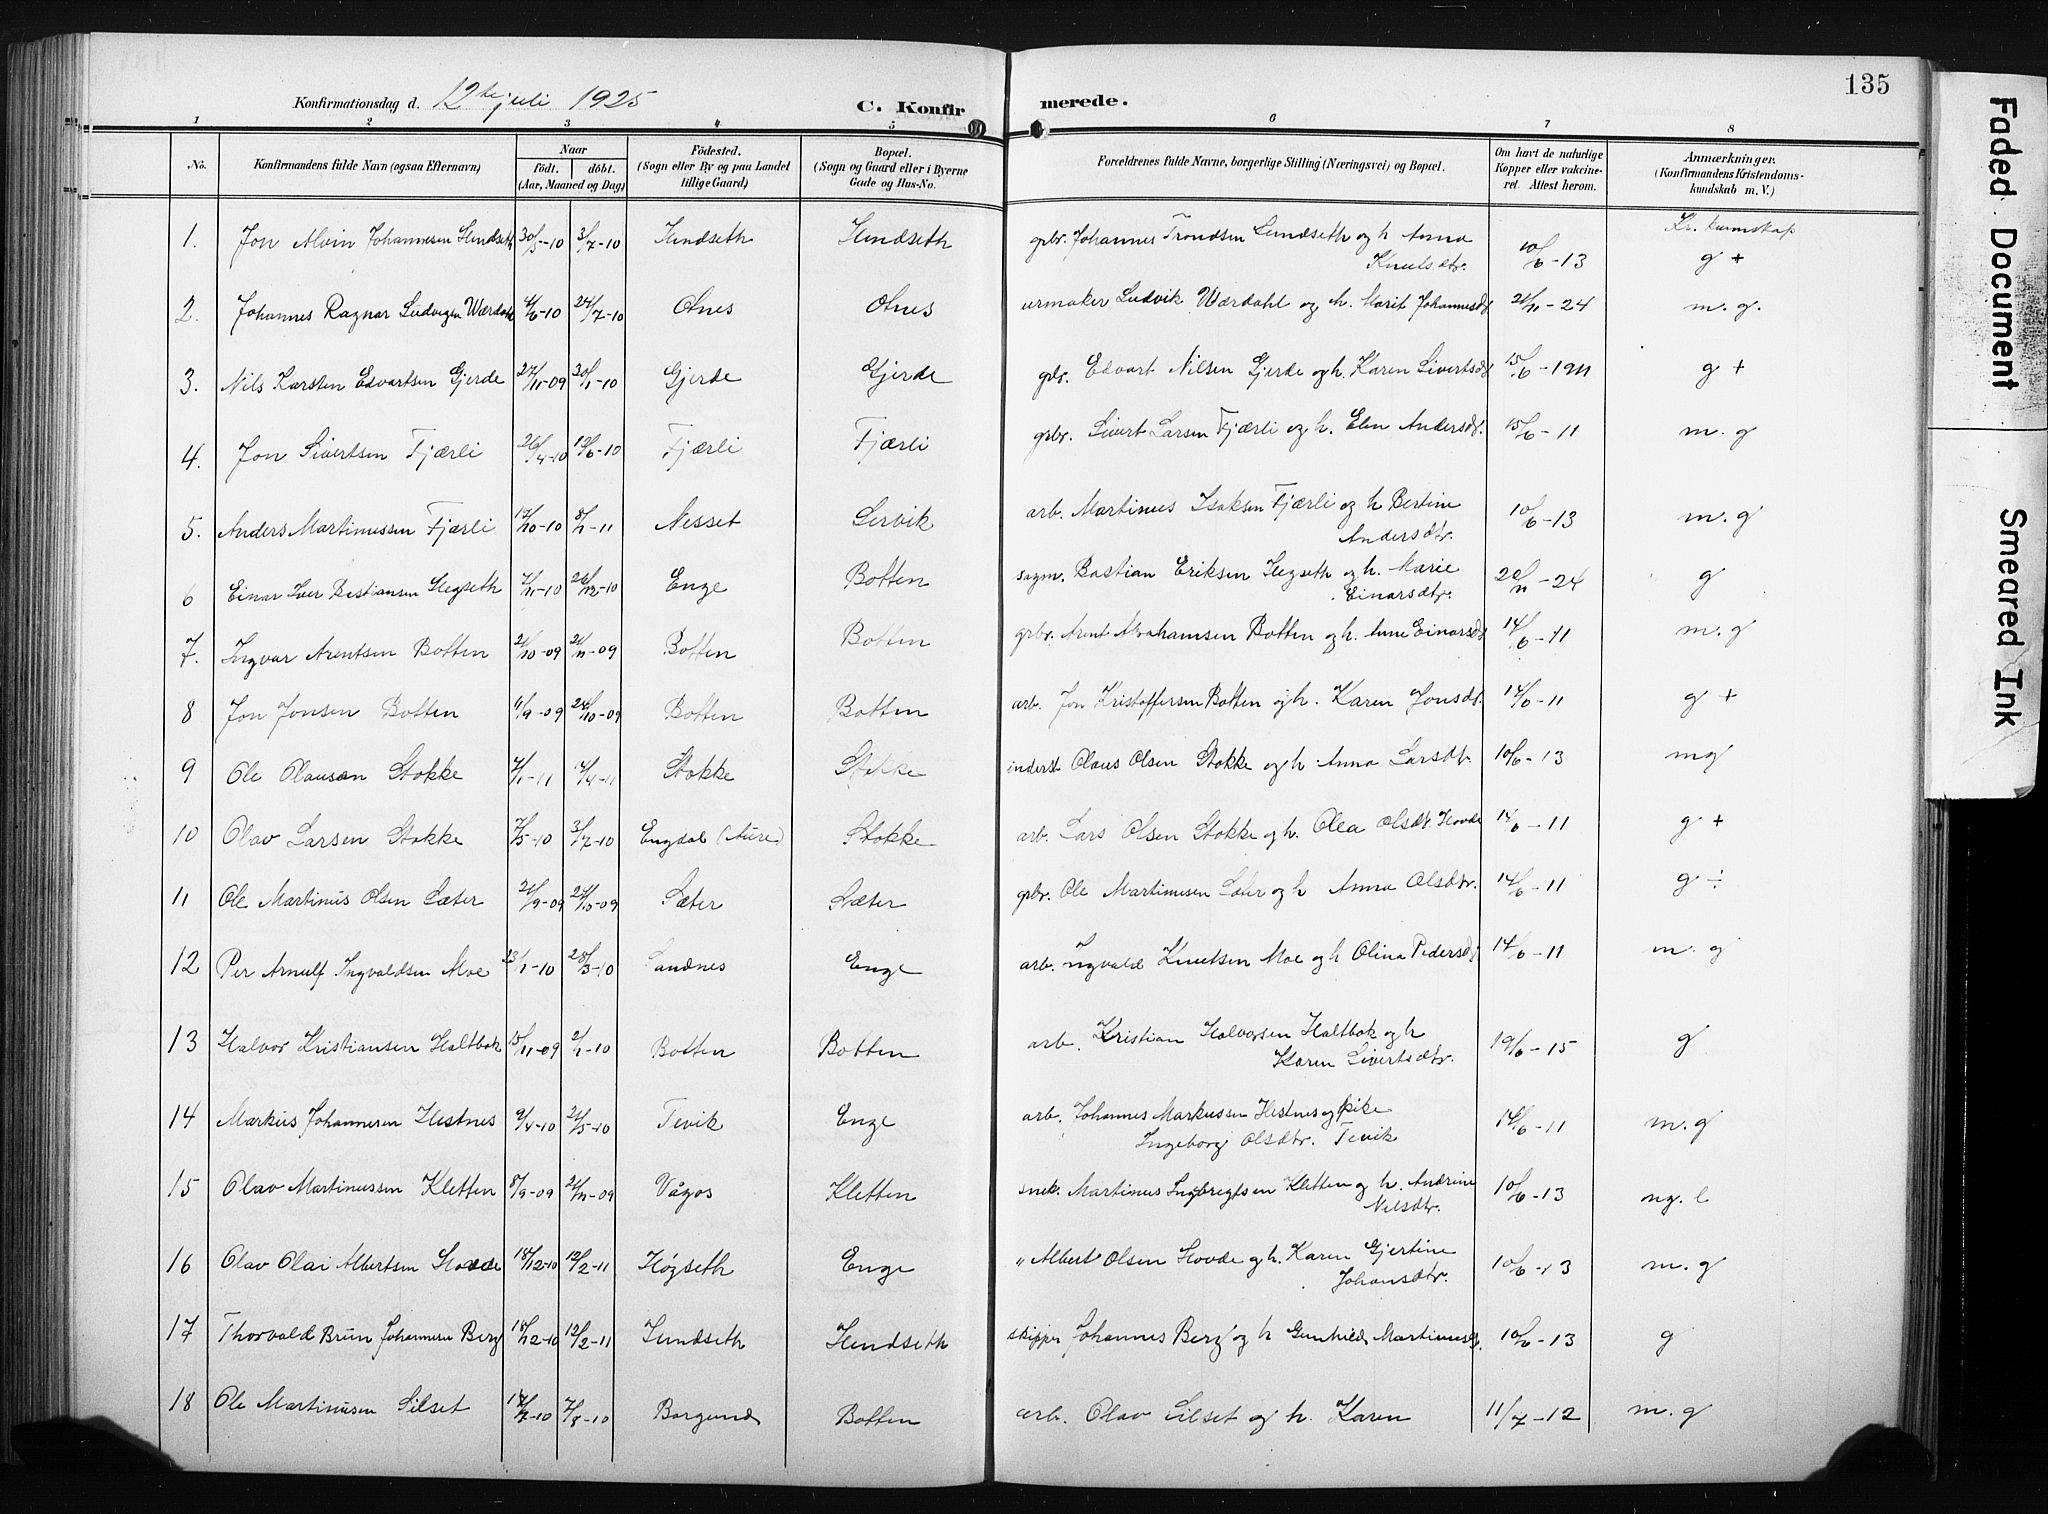 135
Konfirmationsdag d. 12te juli 1925 C. Konfir merede.
1 2 3 4 5 6 7 8
No. Konfirmandens fulde Navn (ogsaa Efternavn) Naar Födt. döbt. (Aar, Maaned og Dag) Födested. (Sogn eller By og paa Landet tillige Gaard) Bopæl. (Sogn og Gaard eller i Byerne Gade og Hus-No. Forældrenes fulde Navne, borgerlige Stilling (Næringsvei) og Bopæl. Om havt de naturlige Kopper eller vakcineret. Attest herom. Anmærkninger. (Konfirmandens Kristendomskundskab m. V.)
Kr. kunnskap
1. Jon Alvin Johannesen Hendseth 30/5-10 3/7-10 Hendseth Hendseth gbr. Johannes Trondsen Hendseth og h. Anna Knutsdtr. 10/6-13 g +
2. Johannes Ragnar Ludvigsen Wærdahl 4/6-10 24/7-10 Otnes Otnes urmaker Ludvik Wærdahl og h. Marit Johannesdt. 21/11-24 m. g.
3. Nils Karsten Edvartsen Gjerde 27/11-09 30/1-10 Gjerde Gjerde gbr. Edvart Nilsen Gjerde og h. Karen Sivertsdt. 15/6-1911 g +
4. Jon Sivertsen Fjærli 26/4-10 19/6-10 Fjærli Fjærli gbr. Sivert Larsen Fjærli og h. Elen Andersdt. 15/6-11 m. g
5. Anders Martinussen Fjærli 17/10-10 8/1-11 Nesset Lervik arb. Martinus Isaksen Fjærli og h Bertine Andersdtr. 10/6-13 m. g
6 Einar Iver Bastiansen Hegseth 7/11-10 26/12-10 Enge Botten sagm. Bastian Eriksen Hegseth og h. Marie Einarsdtr. 20/11-24 g
7. Ingvar Arentsen Botten 21/10-09 21/11-09 Botten Botten gbr. Arent Abrahamsen Botten og h. Anne Einarsdt 14/6-11 m. g
8 Jon Jonsen Botten 11/9-09 24/10-09 Botten Botten arb. Jon Kristoffersen Botten og h. Karen Jonsdt. 14/6-11 g +
9 Ole Olausen Stokke 7/1-11 17/4-11 Stokke Stokke inderst Olaus Olsen Stokke og h Anna Larsdtr. 10/6-13 mg
10 Olav Larsen Stokke 7/5-10 3/7-10 Engdal (Aure) Stokke arb. Lars Olsen Stokke og h. Olea Olsdt. Hovde 14/6-11 g +
11 Ole Martinus Olsen Sæter 21/9-09 24/10-09 Sæter Sæter gbr. Ole Martinusen Sæter og h Anna Olsdtr. 14/6-11 g ÷
12 Per Arnulf Ingvaldsen Moe 23/1-10 28/3-10 Sandnes Enge arb. Ingvald Knutsen Moe og h Olina Pedersdt 14/6-11 m. g
13 Halvor Kristiansen Haltbak 15/11-09 2/1-10 Botten Botten arb. Kristian Halvorsen Haltbak og h Karen Sivertsdtr. 19/6-15 g
14 Markus Johannesen Hestnes 9/4-10 21/5-10 Tevik Enge arb. Johannes Markussen Hestnes og pike Ingeborg Olsdtr. Tevik 14/6-11 m. g
15 Olav Martinussen Kletten 8/9-09 21/11-09 Vågos Kletten snek. Martinus Ingbregtsen Kletten og h. Andrine Nilsdtr. 10/6-13 ng. l
16 Olav Olai Albertsen Hovde 18/12-10 12/2-11 Høgseth Enge " Albert Olsen Hovde og h. Karen Gjertine Johansdtr. 10/6-13 m. g
17 Thorvald Brun Johannesen Berg 18/12-10 12/2-11 Hendseth Hendseth skipper Johannes Berg og h Gunhild Martinusdt. 10/6-13 g
18 Ole Martinusen Silset 14/7-10 7/8-10 Borgund Botten arb. Olav Silset og h. Karen 11/7-12 m. g
Faded Document
Smeared Ink